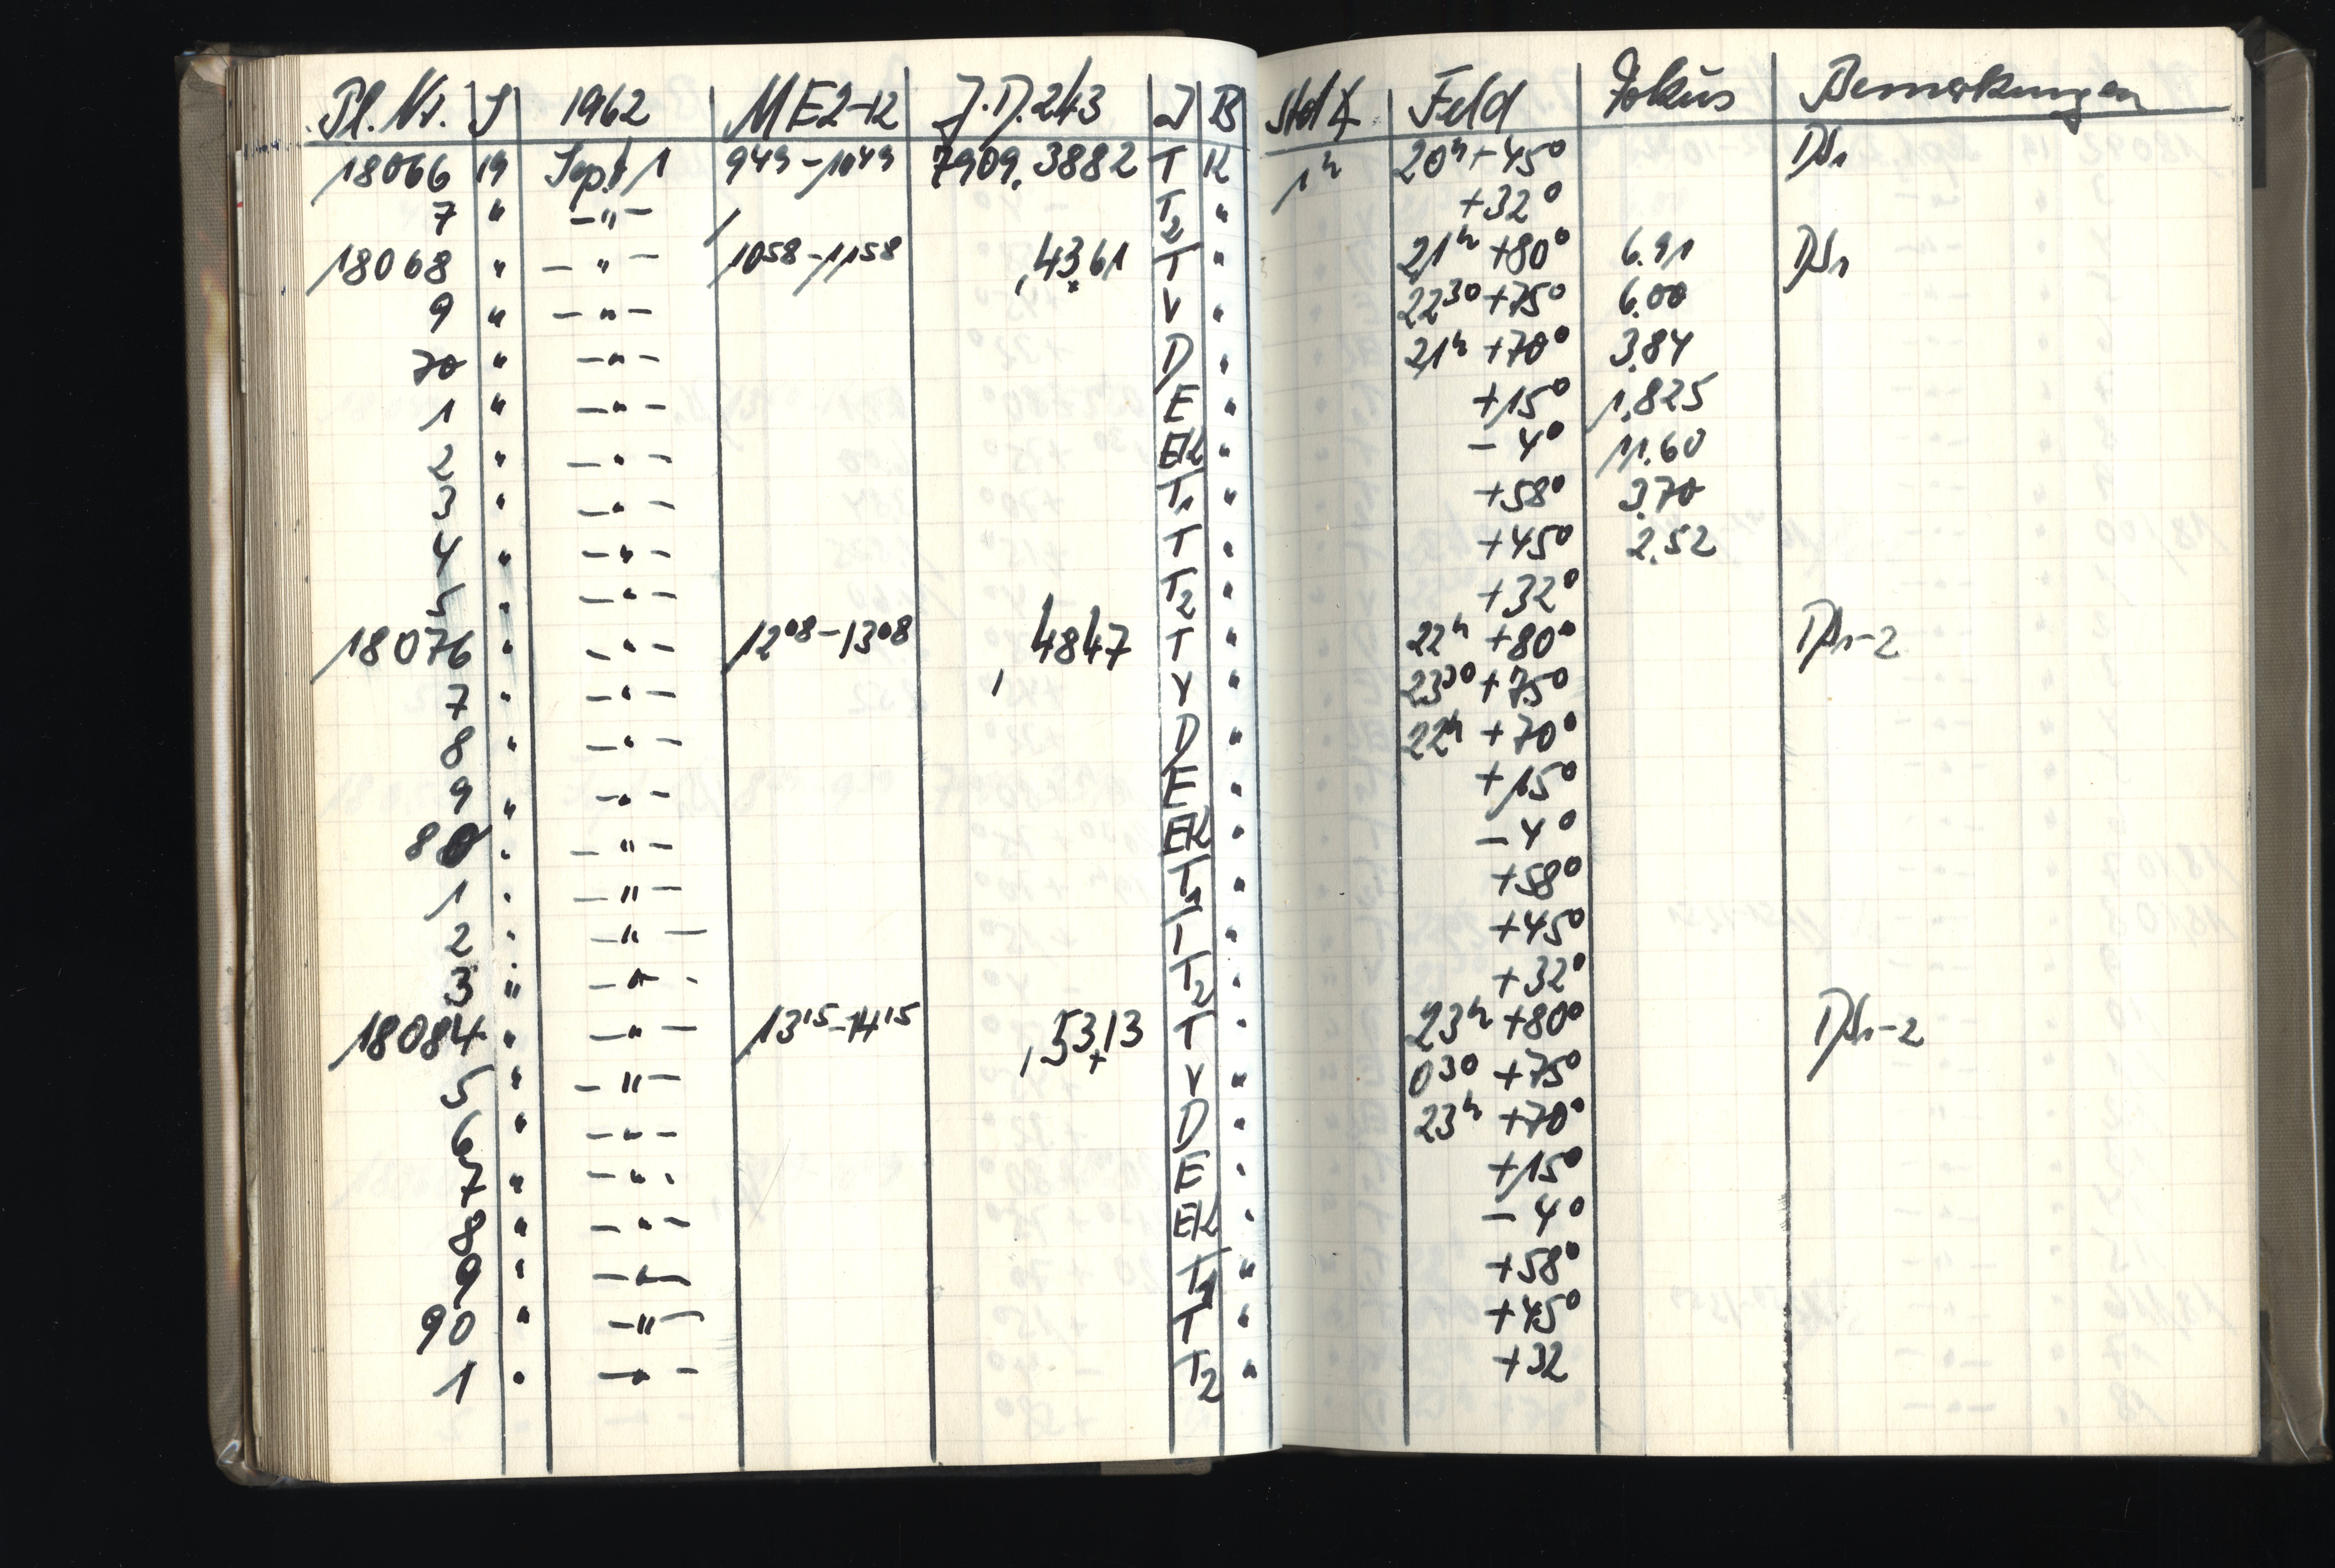 Pl. Nr. S 1962 MEZ-12 J.D. 243 J B Std ∡ Feld Fokus Bemerkungen
18066 19 Sept 1 9⁴⁹-10⁴⁹ 7909,3882 T K 1ʰ 20ʰ+45°
7 " -"- T2 " +32°
18068 " -"- 10⁵⁸-11⁵⁸ ,4361 T " 21ʰ +80° 6.91
9 " -"- V " 22³⁰ +75° 6.00
70 " -"- D " 21ʰ +70° 3.84
1 " -"- E " +15° 1.825
2 " -"- EK " -4° 11.60
3 " -"- T1 " +58° 3.70
4 " -"- T " +45° 2.52
5 " -"- T2 " +32°
18076 " -"- 12⁰⁸-13⁰⁸ ,4847 T " 22ʰ +80°
7 " -"- V " 23³⁰ +75°
8 " -"- D " 22ʰ +70°
9 " -"- E " +15°
80 " -"- EK " -4°
1 " -"- T1 " +58°
2 " -"- T " +45°
3 " -"- T2 " +32°
18084 " -"- 13¹⁵-14¹⁵ ,5313 T " 23ʰ +80°
5 " -"- V " 0³⁰ +75°
6 " -"- D " 23ʰ +70°
7 " -"- E " +15°
8 " -"- EK " -4°
9 " -"- T1 " +58°
90 " -"- T " +45°
1 " -"- T2 " +32